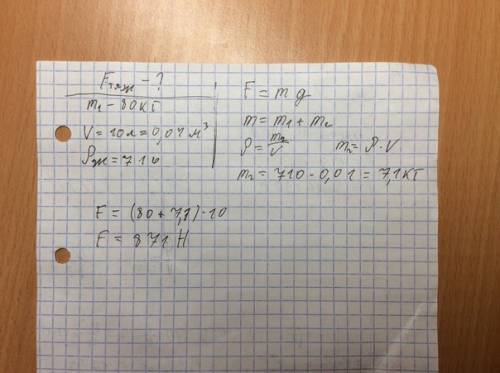 Fтяж - ?
m₁ - 80 кг
V = 10л = 0,01 м³
ρж = 710
F = mg
m = m₁ + m₂
ρ = m₂/V m₂ = ρ · V
m₂ = 710 · 0,01 = 7,1 кг
F = (80 + 7,1) · 10
F = 871 Н